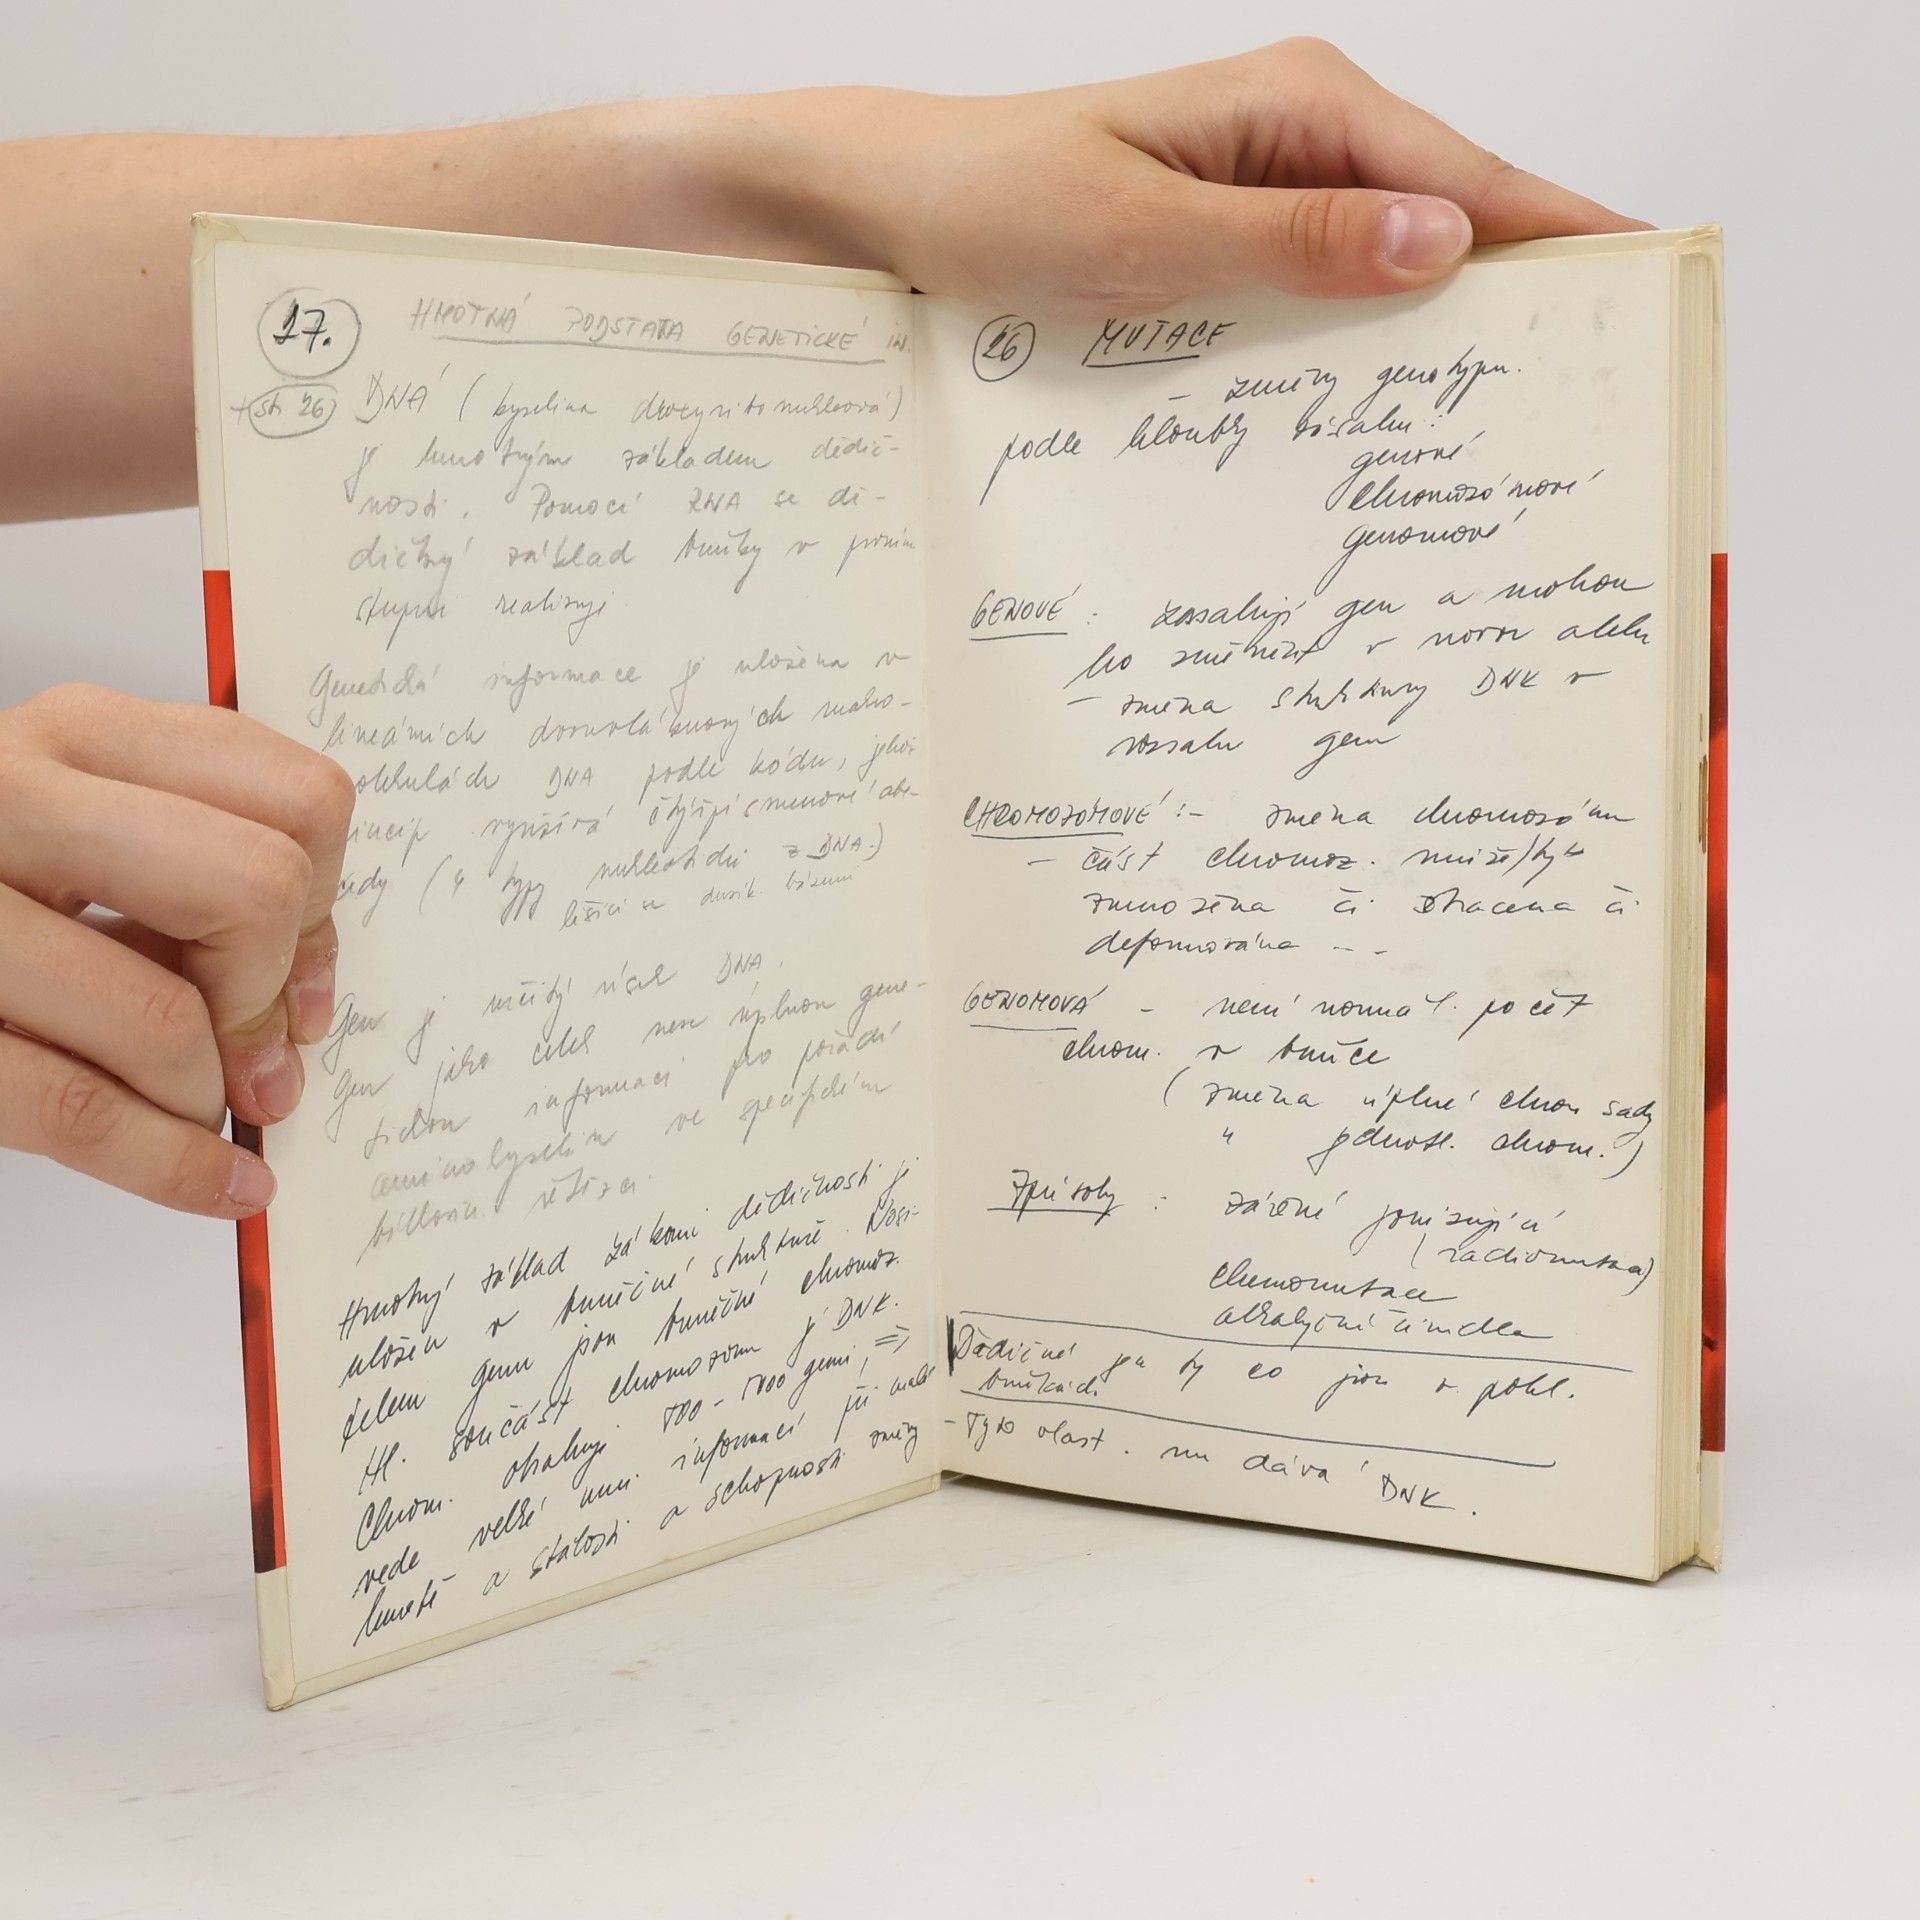 27. HMOTNÁ PODSTATA GENETICKÉ IN.
+ str 26 DNA (kyselina deoxyribonukleová)
je hmotným základem dědič-
nosti. Pomocí RNA se dě-
dičný základ buňky v prvním
stupni realizuje
Genetická informace je uložena v
lineárních dvouvláknových makro-
molekulách DNA podle kódu, jehož
princip využívá čtyřpísmenové abe-
cedy (4 typy nukleotidů z DNA.)
lišící se dusík. bázemi
Gen je určitý úsek DNA.
Gen jako celek nese úplnou gene-
tickou informaci pro pořadí
aminokyselin ve specifickém
bílkovin. řetězci.
Hmotný základ zákonů dědičnosti je
uložen v buněčné struktuře. Nosi-
telem genu jsou buněčné chromoz.
Hl. součást chromozomu je DNK.
Chrom. obsahuje 500-1000 genů, =>
vede velké mn. informací při malé
hmotě a stálosti a schopnosti změny
26 MUTACE
- změny genotypu.
podle hloubky zásahu:
genové
chromozómové
genomové
GENOVÉ: zasahují gen a mohou
ho změnit v novou alelu
- změna struktury DNK v
rozsahu genu
CHROMOZÓMOVÉ: - změna chromozómu
- část chromoz. může být
zmnožena či ztracena či
deformována --
GENOMOVÁ - není normál. počet
chrom. v buňce
(změna úplné chrom sady
" jednotl. chrom.)
Způsoby: záření jonizující
(radiomutace)
chemomutace
alkalyční činidla
Dědičné jen ty co jsou v pohl.
buňkách
- Tyto vlast. mu dává DNK.